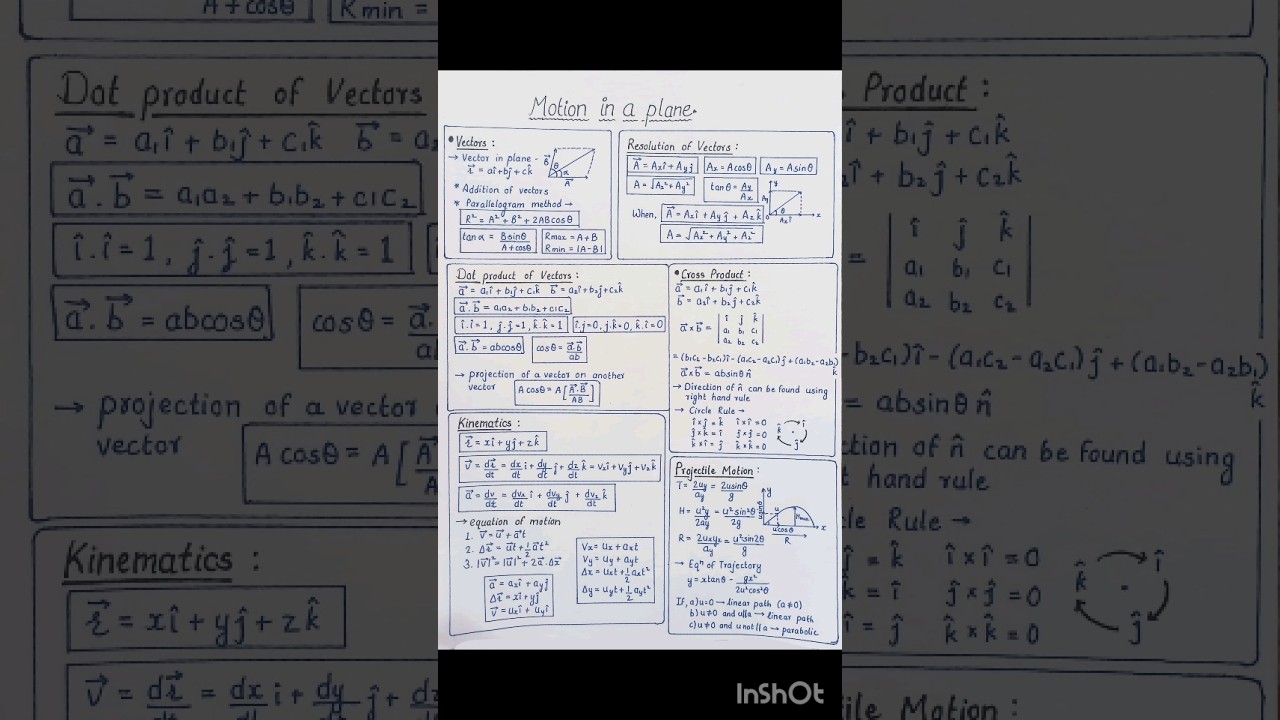 Motion in a plane.
• Vectors :
→ Vector in plane -
r⃗ = aî+bĵ+ck̂
* Addition of vectors
* Parallelogram method →
R² = A² + B² + 2ABcosθ
tanα = Bsinθ / A+cosθ
Rmax = A+B
Rmin = |A-B|
Resolution of Vectors :
A⃗ = Axî + Ayĵ
Ax = Acosθ
Ay = Asinθ
A = √Ax²+Ay²
tanθ = Ay / Ax
When, A⃗ = Axî + Ayĵ + Azk̂
A = √Ax² + Ay² + Az²
Dot product of Vectors :
a⃗ = a₁î + b₁ĵ + c₁k̂ b⃗ = a₂î + b₂ĵ + c₂k̂
a⃗.b⃗ = a₁a₂ + b₁b₂ + c₁c₂
î.î = 1, ĵ.ĵ = 1, k̂.k̂ = 1
î.ĵ=0, ĵ.k̂=0, k̂.î=0
a⃗.b⃗ = abcosθ
cosθ = a⃗.b⃗ / ab
→ projection of a vector on another
vector
A cosθ = A[A⃗.B⃗ / AB]
• Cross Product :
a⃗ = a₁î + b₁ĵ + c₁k̂
b⃗ = a₂î + b₂ĵ + c₂k̂
a⃗ x b⃗ = | î ĵ k̂ |
| a₁ b₁ c₁ |
| a₂ b₂ c₂ |
= (b₁c₂ - b₂c₁)î - (a₁c₂ - a₂c₁)ĵ + (a₁b₂ - a₂b₁)k̂
a⃗ x b⃗ = absinθ n̂
→ Direction of n̂ can be found using
right hand rule
→ Circle Rule →
î x ĵ = k̂ î x î = 0
ĵ x k̂ = î ĵ x ĵ = 0
k̂ x î = ĵ k̂ x k̂ = 0
k̂ î
ĵ
Kinematics :
r⃗ = xî + yĵ + zk̂
v⃗ = dr⃗/dt = dx/dt î + dy/dt ĵ + dz/dt k̂ = vxî + vyĵ + vzk̂
a⃗ = dv/dt = dvx/dt î + dvy/dt ĵ + dvz/dt k̂
→ equation of motion
1. v⃗ = u⃗ + a⃗t
2. Δr⃗ = u⃗t + 1/2 a⃗t²
3. |v⃗|² = |u⃗|² + 2a⃗.Δx⃗
a⃗ = axî + ayĵ
Δr⃗ = xî + yĵ
v⃗ = uxî + uyî
Vx = ux + axt
Vy = uy + ayt
Δx = uxt + 1/2 axt²
Δy = uyt + 1/2 ayt²
Projectile Motion :
T = 2uy / ay = 2usinθ / g
H = u²y / 2ay = u²sin²θ / 2g
R = 2uxuy / ay = u²sin2θ / g
→ Eqⁿ of Trajectory
y = xtanθ - gx² / 2u²cos²θ
If, a) u=0 → linear path (a≠0)
b) u≠0 and u||a → linear path
c) u≠0 and u not || a → parabolic
InShOt